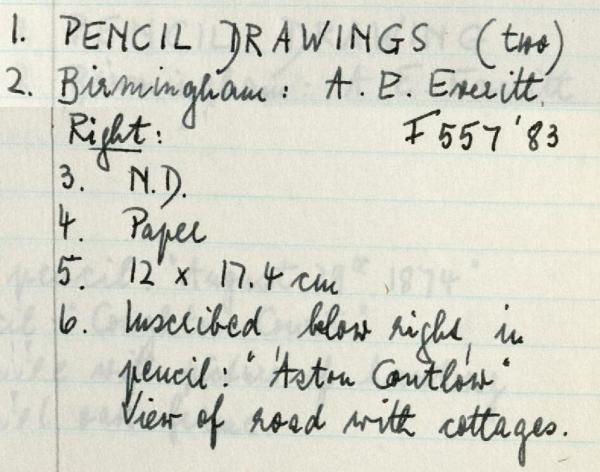 1. PENCIL DRAWINGS (two)
2. Birmingham: A. E. Everitt.
Right: F557'83
3. N.D.
4. Paper
5. 12 x 17.4 cm
6. Inscribed below right, in
pencil: "Aston Cantlow"
View of road with cottages.